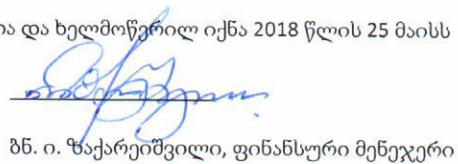 ია და ხელმოწერილ იქნა 2018 წლის 25 მაისს
ბნ. ი. ზაქარეიშვილი, ფინანსური მენეჯერი